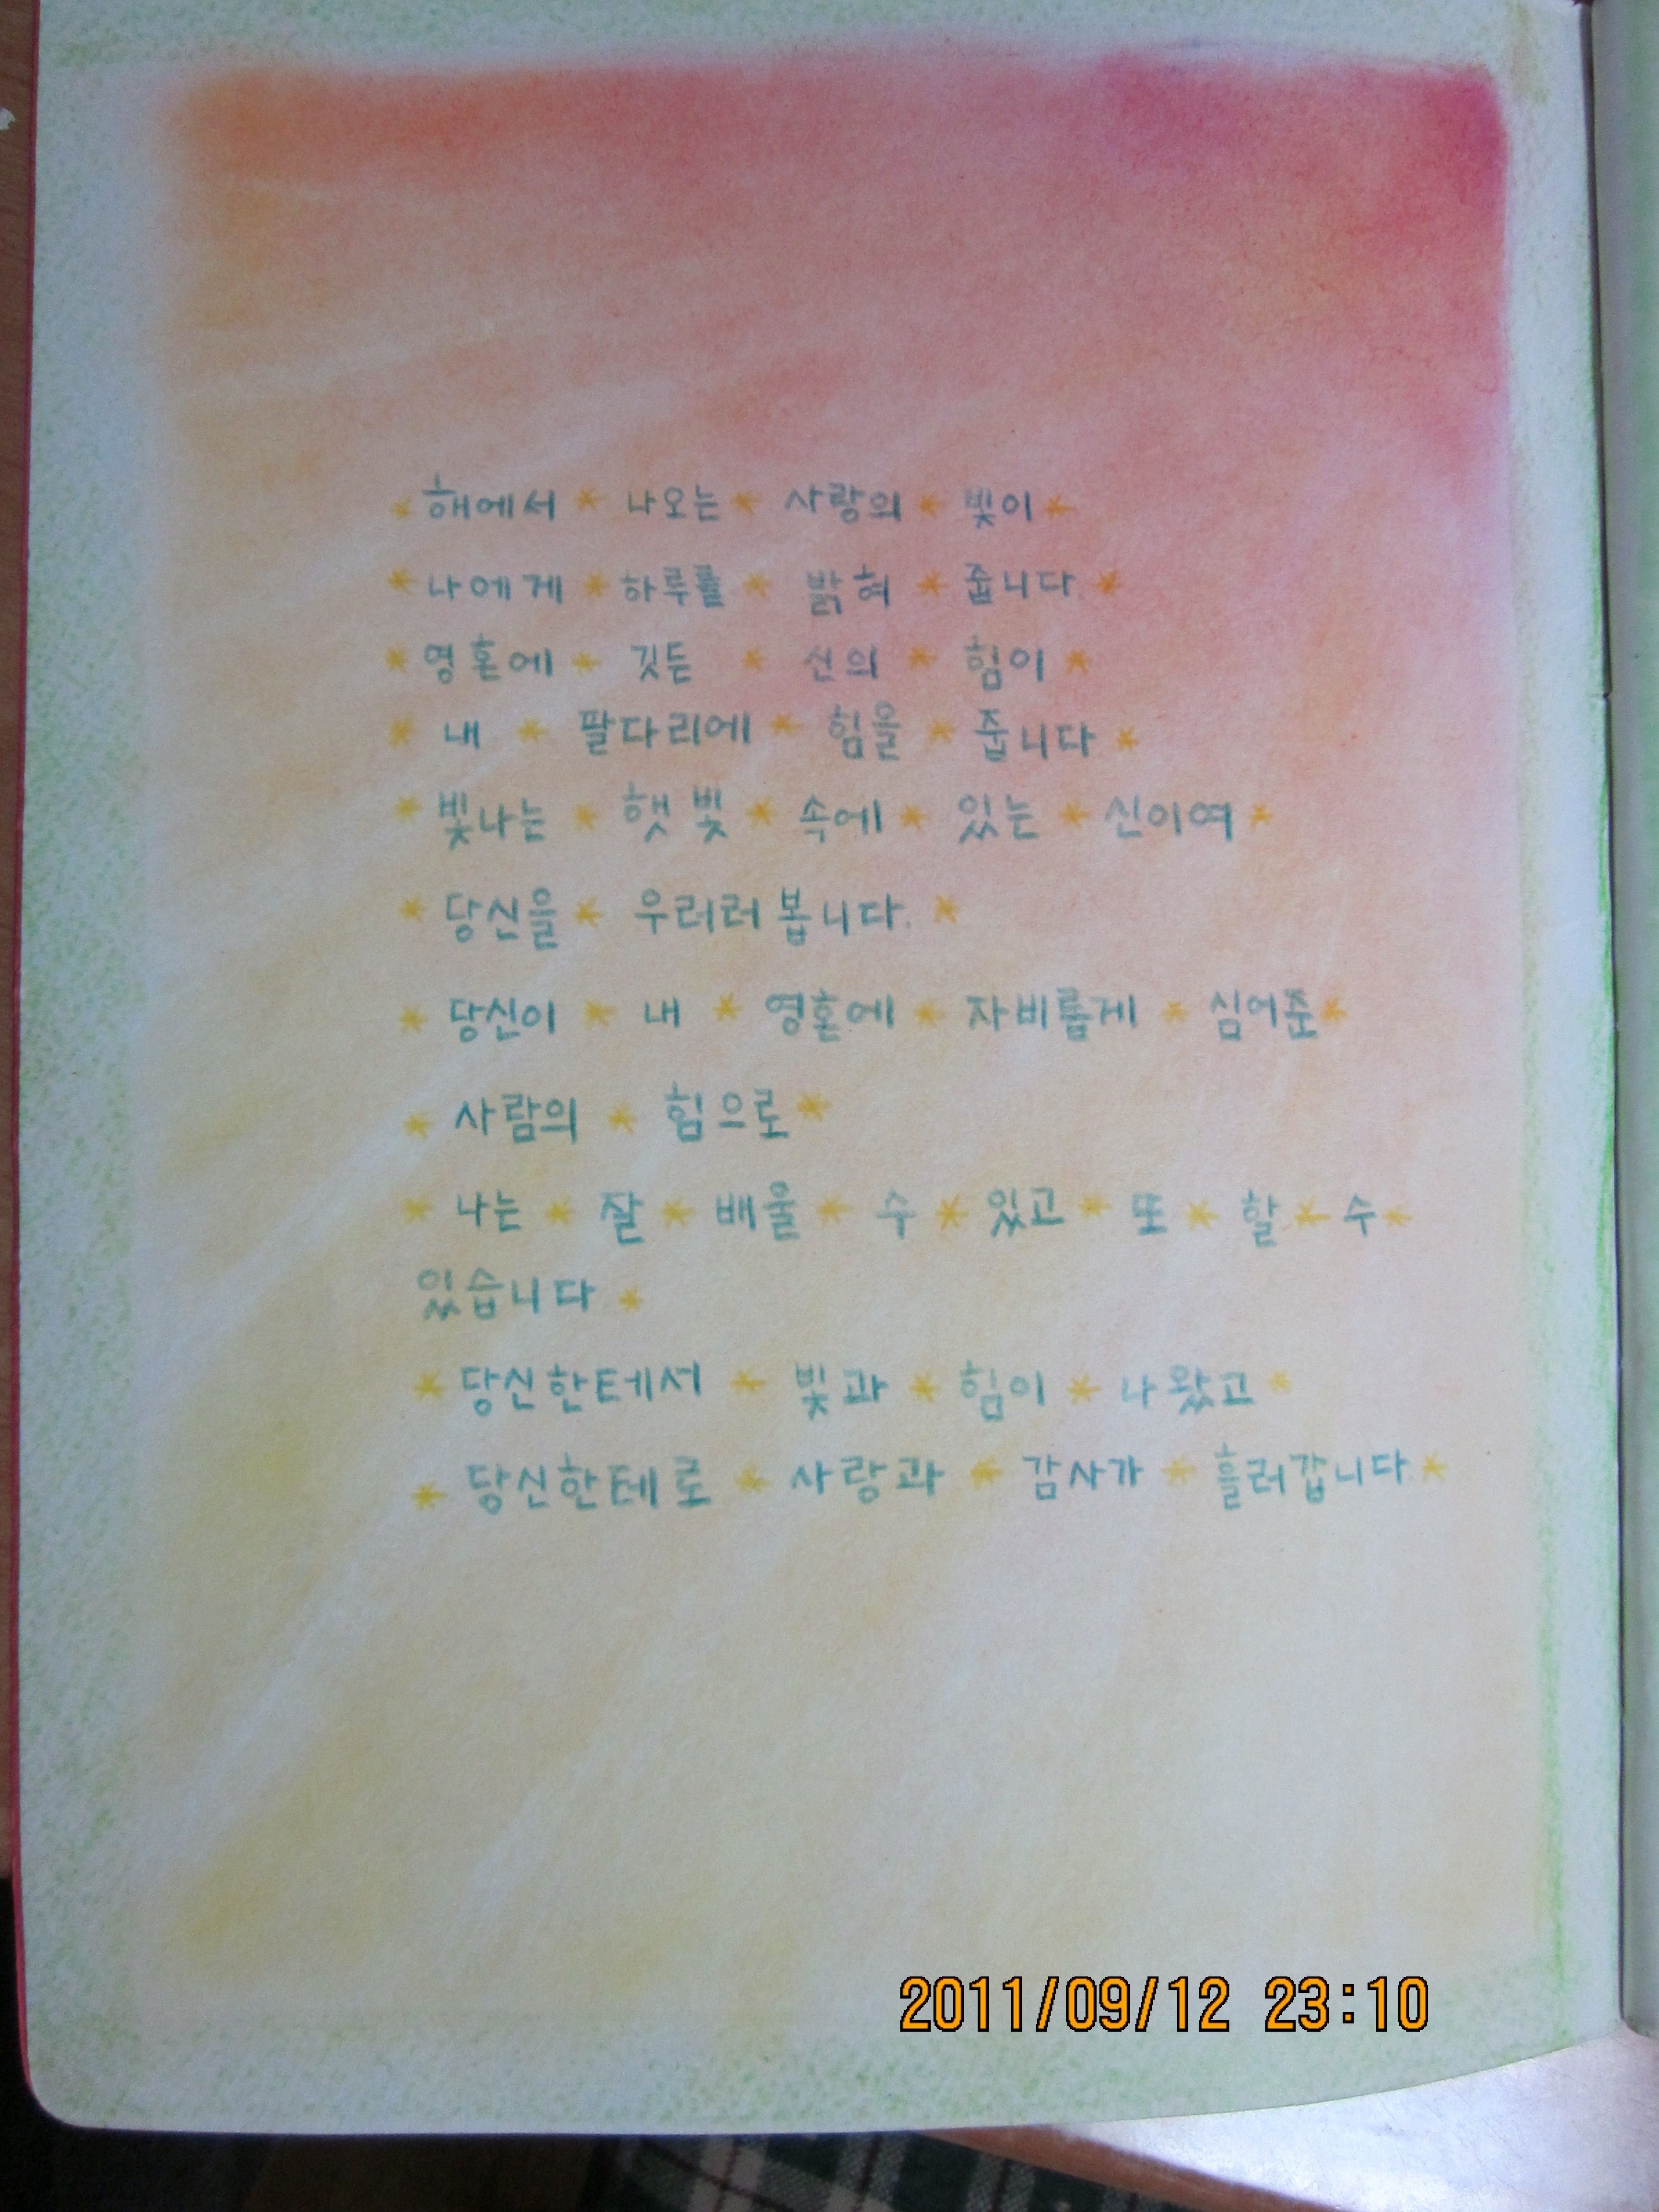 * 해에서 * 나오는 * 사랑의 * 빛이 *
* 나에게 * 하루를 * 밝혀 * 줍니다. *
* 영혼에 * 깃든 * 신의 * 힘이 *
* 내 * 팔다리에 * 힘을 * 줍니다 *
* 빛나는 * 햇빛 * 속에 * 있는 * 신이여 *
* 당신을 * 우러러봅니다. *
* 당신이 * 내 * 영혼에 * 자비롭게 * 심어준 *
* 사람의 * 힘으로 *
* 나는 * 잘 * 배울 * 수 * 있고 * 또 * 할 * 수 *
있습니다 *
* 당신한테서 * 빛과 * 힘이 * 나왔고 *
* 당신한테로 * 사랑과 * 감사가 * 흘러갑니다. *
2011/09/12 23:10